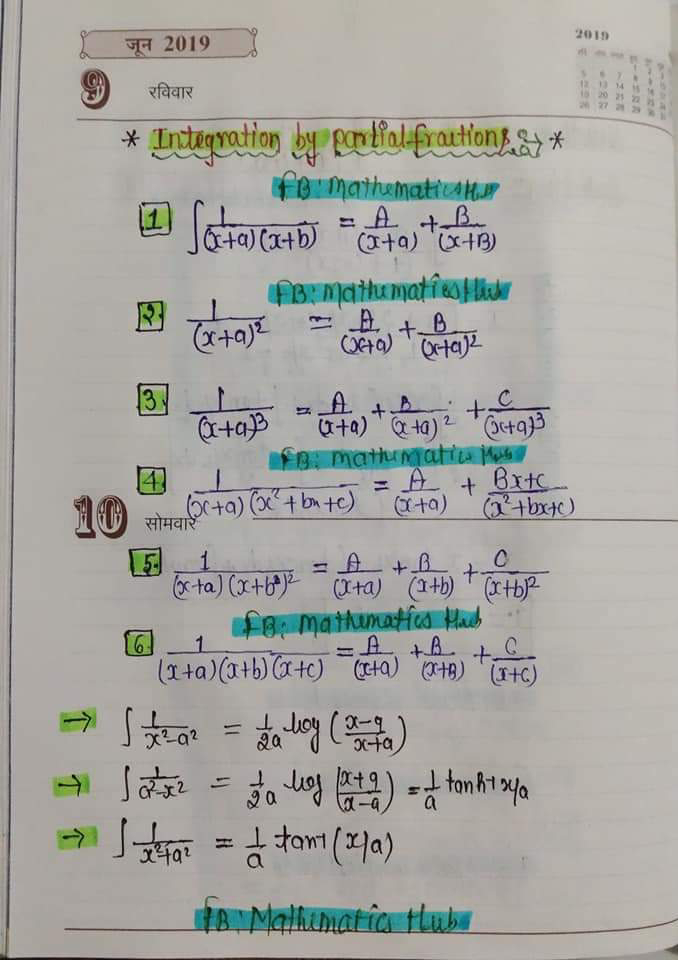 जून 2019
2019
9 रविवार
* Integration by partial fractions → *
FB: Mathematics Hub
1 ∫ 1/(x+a)(x+b) = A/(x+a) + B/(x+B)
FB: Mathematics Hub
2. 1/(x+a)² = A/(x+a) + B/(x+a)²
3. 1/(x+a)³ = A/(x+a) + B/(x+a)² + C/(x+a)³
FB: Mathematics Hub
4. 1/(x+a)(x²+bx+c) = A/(x+a) + Bx+C/(x²+bx+c)
10 सोमवार
5. 1/(x+a)(x+b)² = A/(x+a) + B/(x+b) + C/(x+b)²
FB: Mathematics Hub
6. 1/(x+a)(x+b)(x+c) = A/(x+a) + B/(x+B) + C/(x+c)
→ ∫ 1/x²-a² = 1/2a log (x-a/x+a)
→ ∫ 1/a²-x² = 1/2a log (x+a/x-a) = 1/a tanh-1 x/a
→ ∫ 1/x²+a² = 1/a tan-1 (x/a)
FB: Mathematics Hub